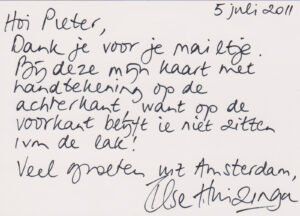 5 juli 2011
Hoi Pieter,
Dank je voor je mailtje.
Bij deze mijn kaart met
handtekening op de
achterkant, want op de
voorkant blijft ie niet zitten
ivm de lak!
Veel groeten uit Amsterdam,
Ilse Huizinga